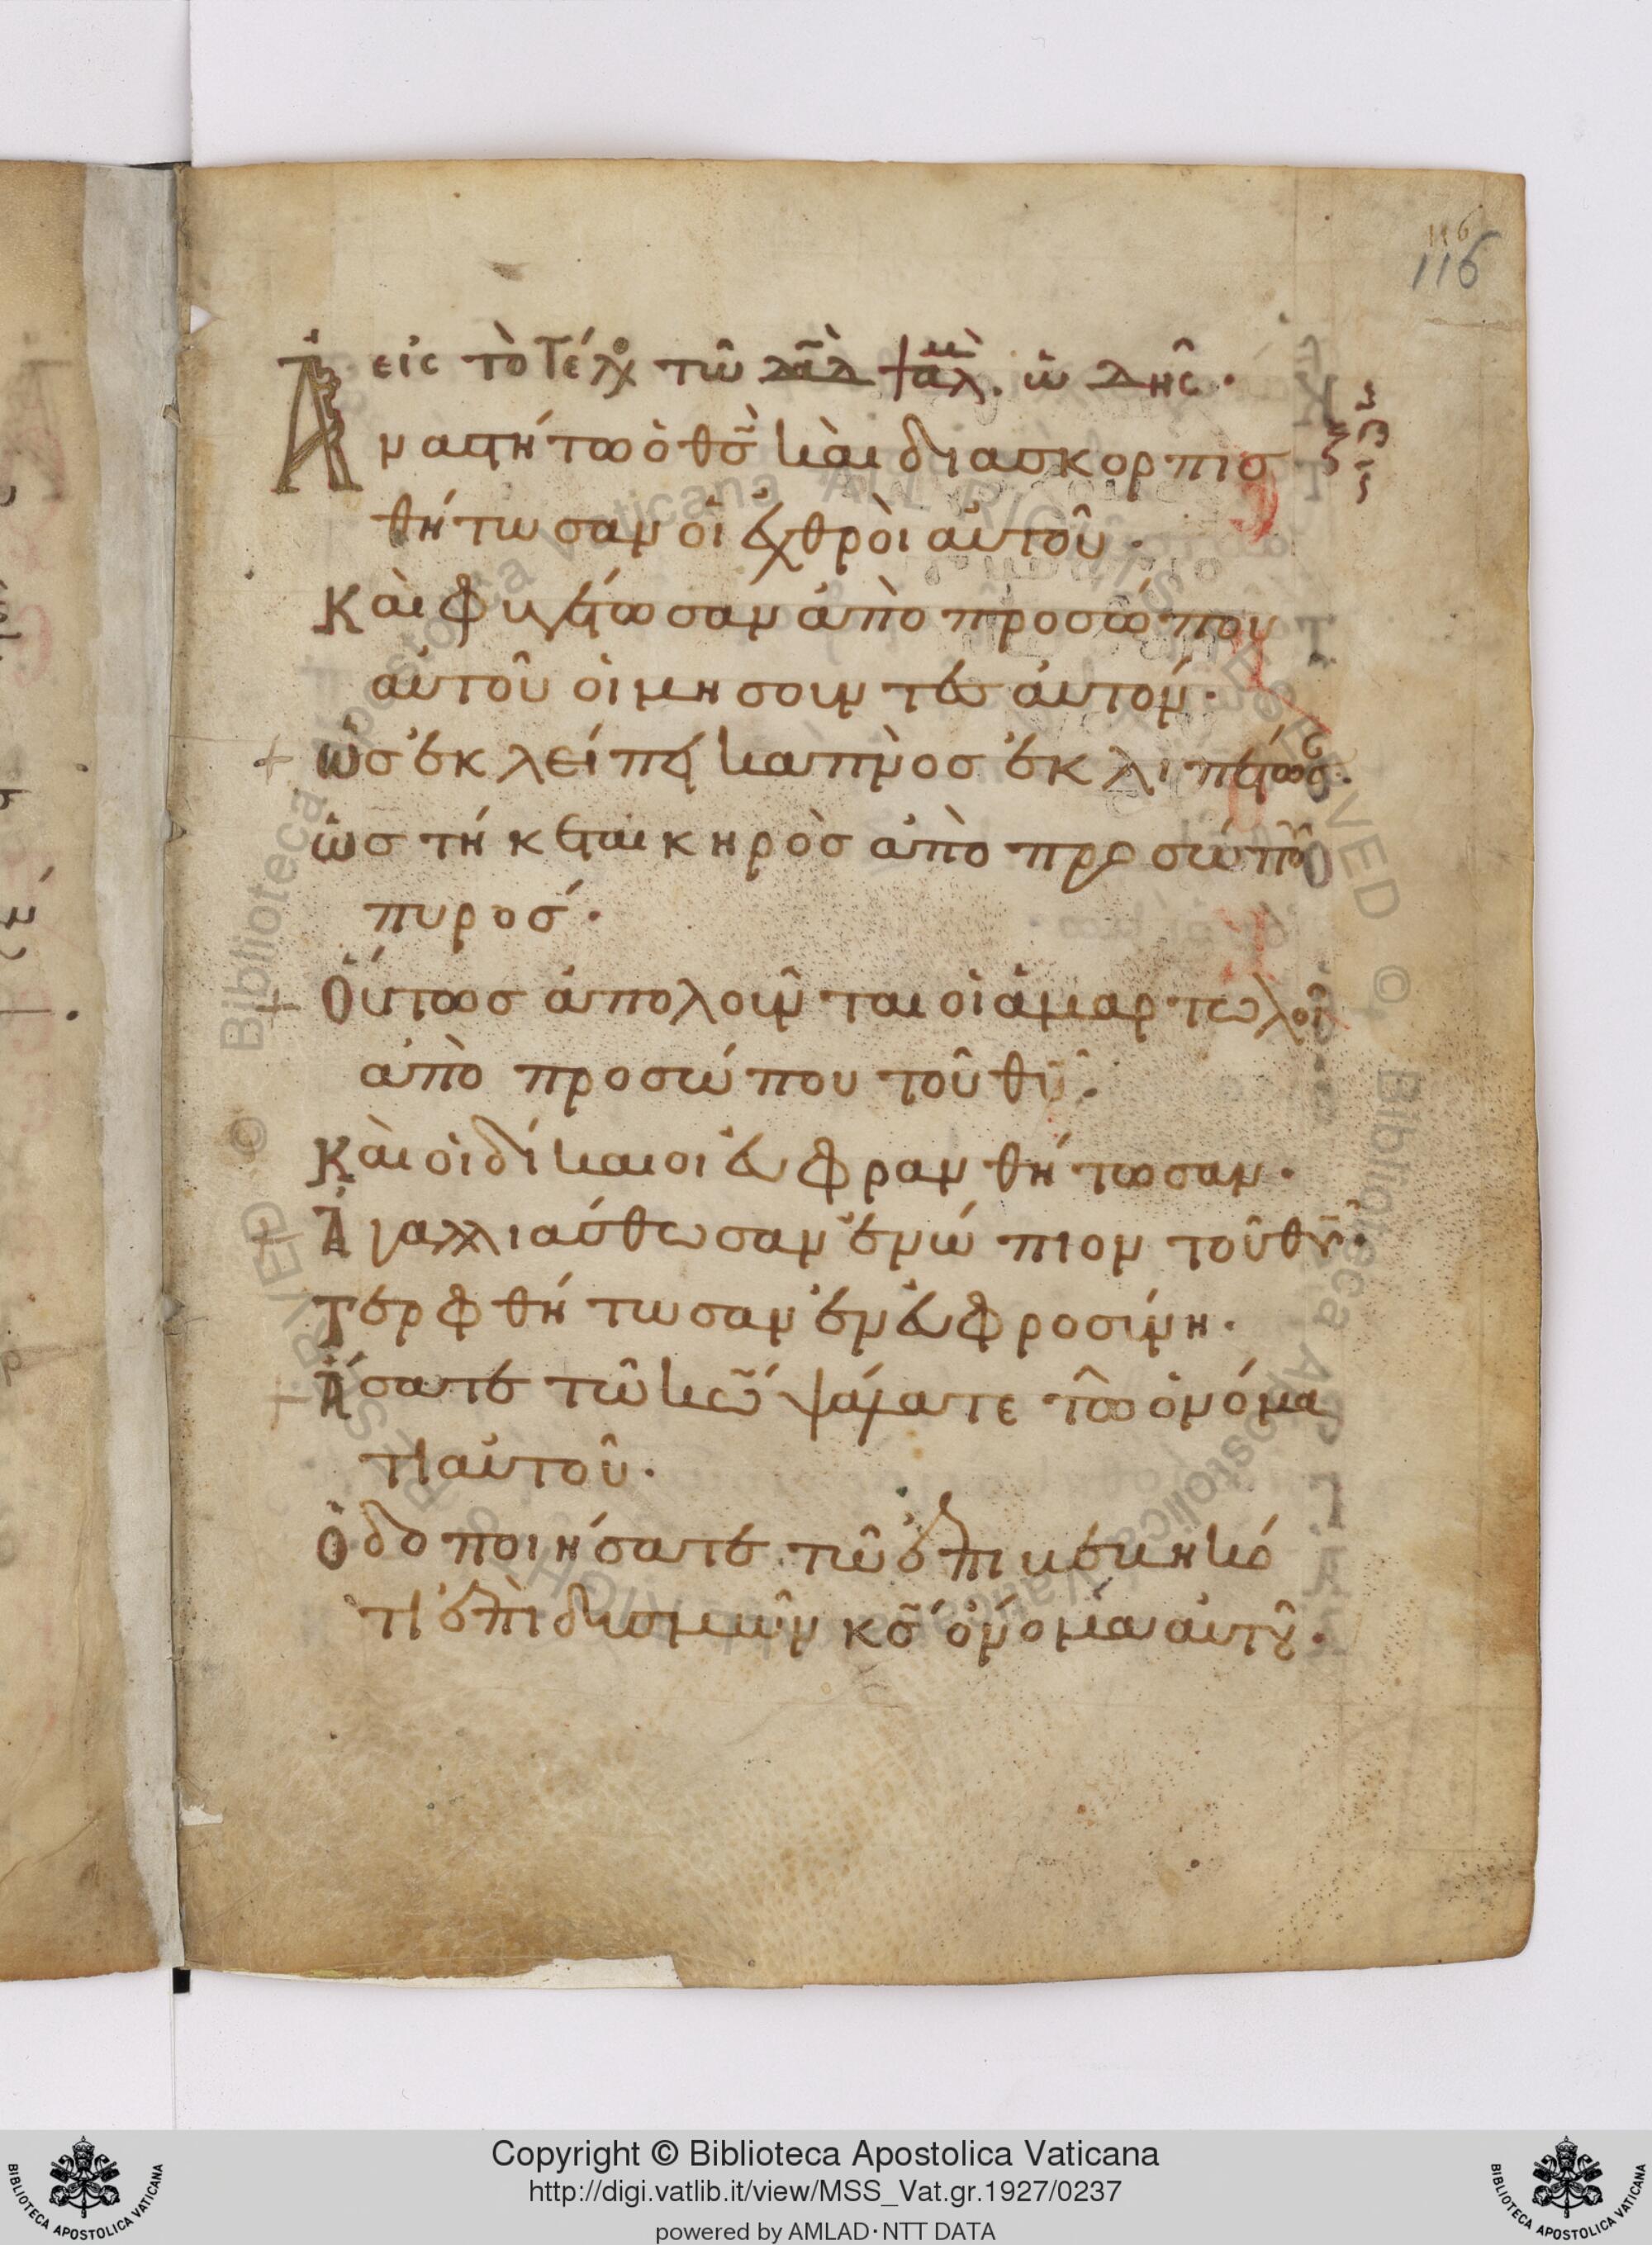 116
116
εἰς τὸ τέλο τῶ δᾶδ ψαλμ. ὠδῆς·
Ἀναστήτω ὁ θς̃ καὶ διασκορπισ
θήτωσαν οἱ ἐχθροὶ αὐτοῦ·
Καὶ φυγέτωσαν ἀπὸ προσώπου
αὐτοῦ οἱ μισοῦντες αὐτόν·
ὡς ἐκλείπει καπνὸς ἐκλιπέτωσ·
ὡς τήκεται κηρὸς ἀπὸ προσώπου
πυρός·
Οὕτως ἀπολοῦνται οἱ ἁμαρτωλοὶ
ἀπὸ προσώπου τοῦ θῦ·
Καὶ οἱ δίκαιοι εὐφρανθήτωσαν·
Ἀγαλλιάσθωσαν ἐνώπιον τοῦ θῦ·
τερφθήτωσαν ἐν εὐφροσύνη·
Ἄσατε τῶ κω̃ ψάλατε τῶ ὀνόμα
τι αὐτοῦ·
Ὁδοποιήσατε τῶ ἐπιβεβηκό
τι ἐπὶ δυσμῶν κς̃ ὄνομα αὐτοῦ·
Copyright © Biblioteca Apostolica Vaticana
http://digi.vatlib.it/view/MSS_Vat.gr.1927/0237
powered by AMLAD·NTT DATA
BIBLIOTECA APOSTOLICA VATICANA
BIBLIOTECA APOSTOLICA VATICANA